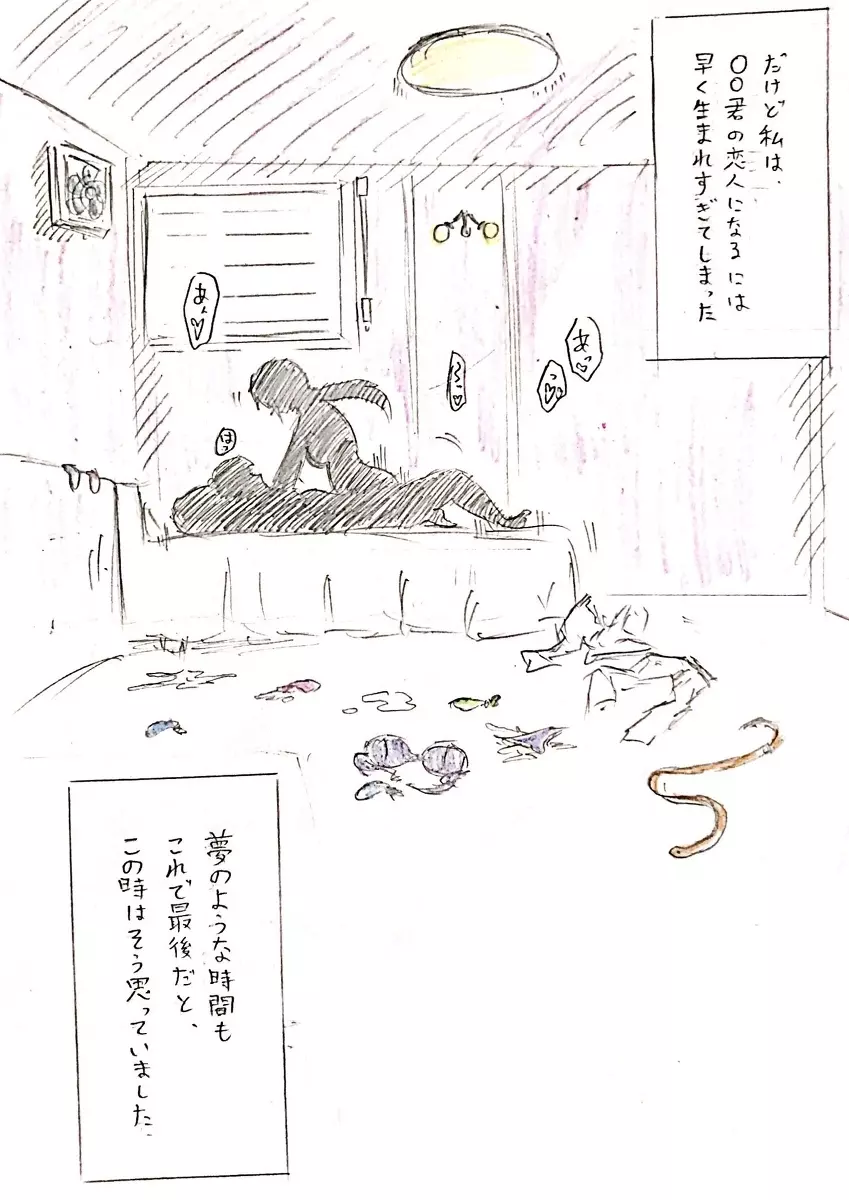 だけど私は、
〇〇君の恋人になるには
早く生まれすぎてしまった
あっ♡
っ♡
あぁ♡
はっ
夢のような時間も
これで最後だと、
この時はそう思っていました